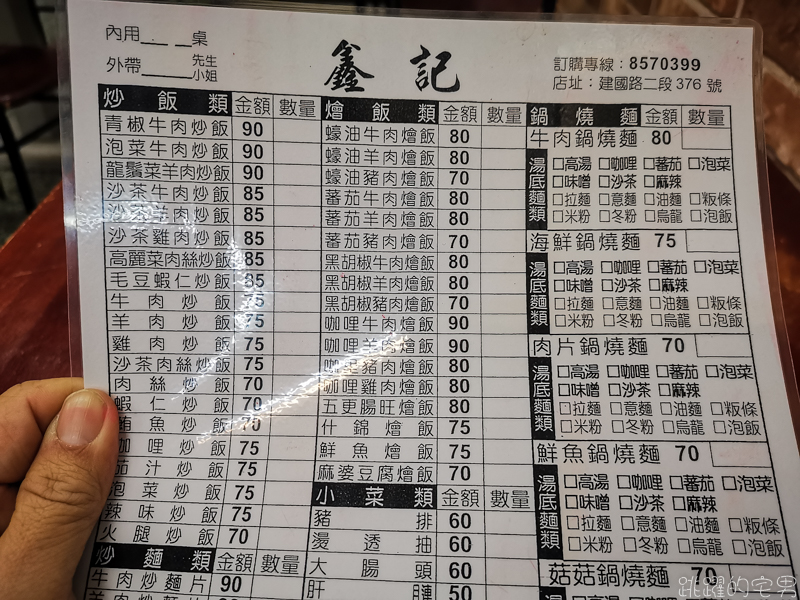 內用＿＿ ＿＿桌
外帶＿＿＿＿ 先生 小姐
鑫記
訂購專線：8570399
店址：建國路二段376號
炒飯類 金額 數量
青椒牛肉炒飯 90
泡菜牛肉炒飯 90
龍鬚菜羊肉炒飯 90
沙茶牛肉炒飯 85
沙茶羊肉炒飯 85
沙茶雞肉炒飯 85
高麗菜肉絲炒飯 85
毛豆蝦仁炒飯 85
牛肉炒飯 75
羊肉炒飯 75
雞肉炒飯 75
沙茶肉絲炒飯 75
肉絲炒飯 70
蝦仁炒飯 70
鮪魚炒飯 70
咖哩炒飯 75
茄汁炒飯 75
泡菜炒飯 75
辣味炒飯 75
火腿炒飯 70
炒麵類 金額 數量
牛肉炒麵片 90
燴飯類 金額 數量
蠔油牛肉燴飯 80
蠔油羊肉燴飯 80
蠔油豬肉燴飯 70
蕃茄牛肉燴飯 80
蕃茄羊肉燴飯 80
蕃茄豬肉燴飯 70
黑胡椒牛肉燴飯 80
黑胡椒羊肉燴飯 80
黑胡椒豬肉燴飯 70
咖哩牛肉燴飯 90
咖哩羊肉燴飯 90
咖哩豬肉燴飯 80
咖哩雞肉燴飯 80
五更腸旺燴飯 80
什錦燴飯 75
鮮魚燴飯 75
麻婆豆腐燴飯 70
小菜類 金額 數量
豬排 60
燙透抽 60
大腸頭 60
肝膶 50
鍋燒麵 金額 數量
牛肉鍋燒麵 80
湯底麵類
□高湯 □咖哩 □蕃茄 □泡菜
□味噌 □沙茶 □麻辣
□拉麵 □意麵 □油麵 □粄條
□米粉 □冬粉 □烏龍 □泡飯
海鮮鍋燒麵 75
湯底麵類
□高湯 □咖哩 □蕃茄 □泡菜
□味噌 □沙茶 □麻辣
□拉麵 □意麵 □油麵 □粄條
□米粉 □冬粉 □烏龍 □泡飯
肉片鍋燒麵 70
湯底麵類
□高湯 □咖哩 □蕃茄 □泡菜
□味噌 □沙茶 □麻辣
□拉麵 □意麵 □油麵 □粄條
□米粉 □冬粉 □烏龍 □泡飯
鮮魚鍋燒麵 70
湯底麵類
□高湯 □咖哩 □蕃茄 □泡菜
□味噌 □沙茶 □麻辣
□拉麵 □意麵 □油麵 □粄條
□米粉 □冬粉 □烏龍 □泡飯
菇菇鍋燒麵 70
跳躍的宅男